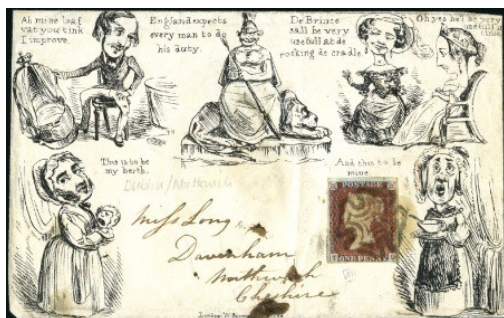 Ah mine loaf
vat you tink
I improve.
England expects
every man to do
his duty.
De Brince
sall be very
usefull at de
rocking de cradle.
Oh yes he'l be very
usefull
time
This is to be
my berth.
And this to be
mine.
Miss Long
Davenham
Northwich
Cheshire
POSTAGE
ONE PENNY
London